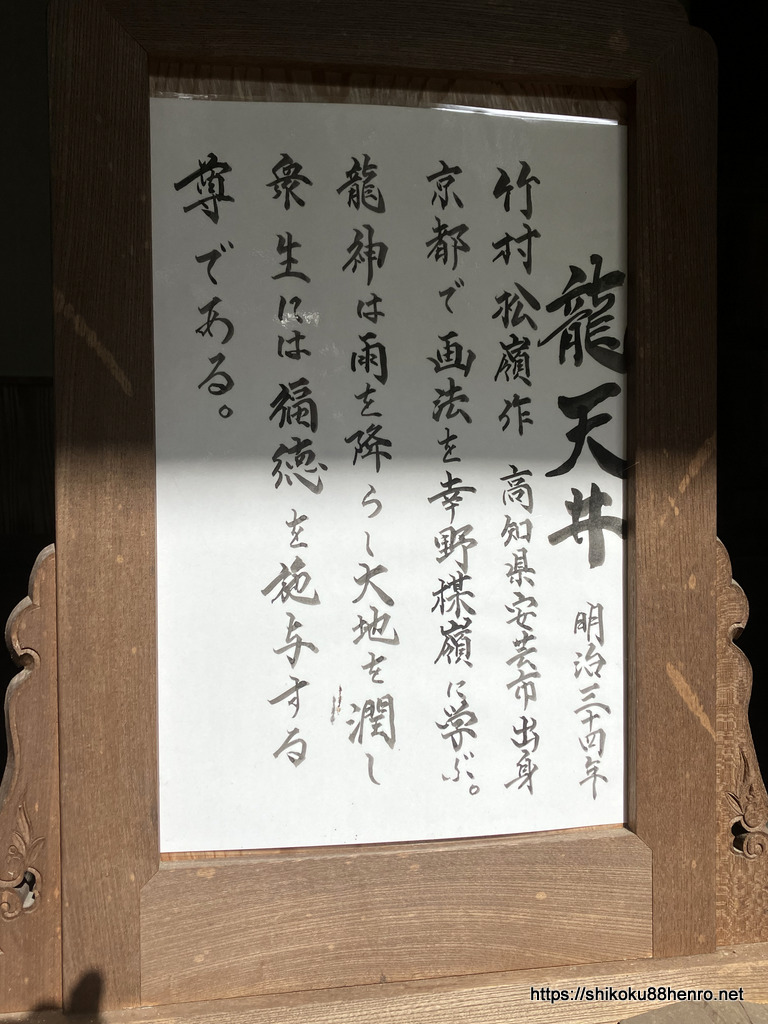 龍天井 明治三十四年
竹村松嶺作 高知県安芸市出身
京都で画法を幸野楳嶺に学ぶ。
龍神は雨を降らし大地を潤し
衆生には福徳を施与する
尊である。
https://shikoku88henro.net